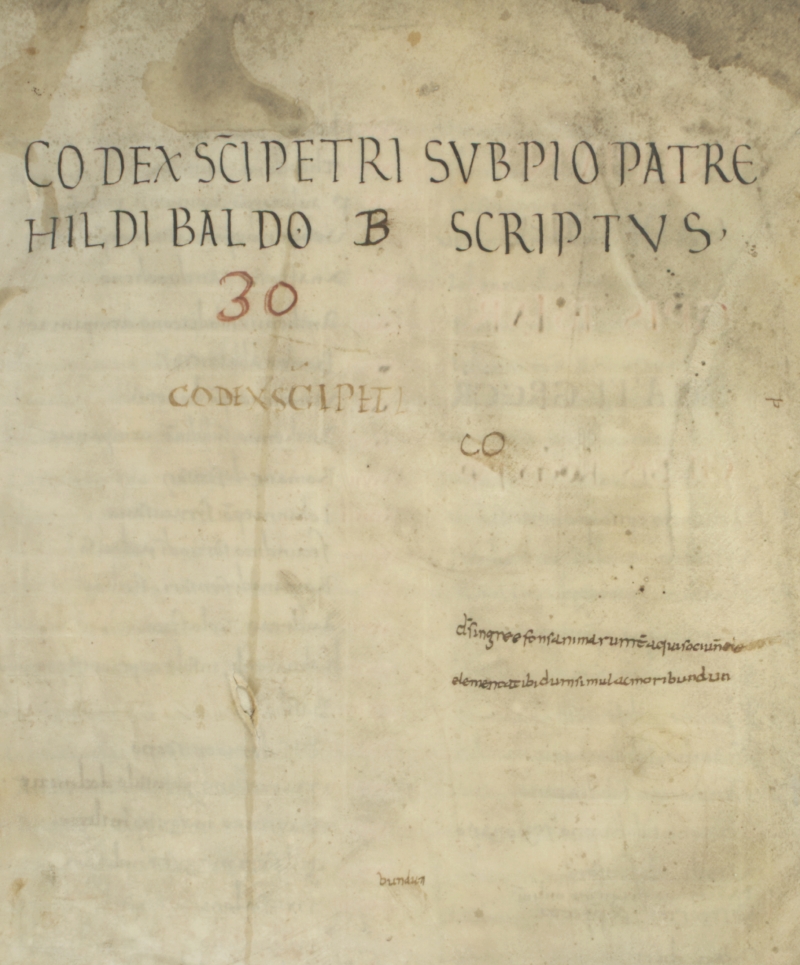 CODEX SC̄I PETRI SVB PIO PATRE
HILDIBALDO B SCRIPTVS
30
CODEX SCI PET
CO
elementatibi dum simulac moribundun
bundus